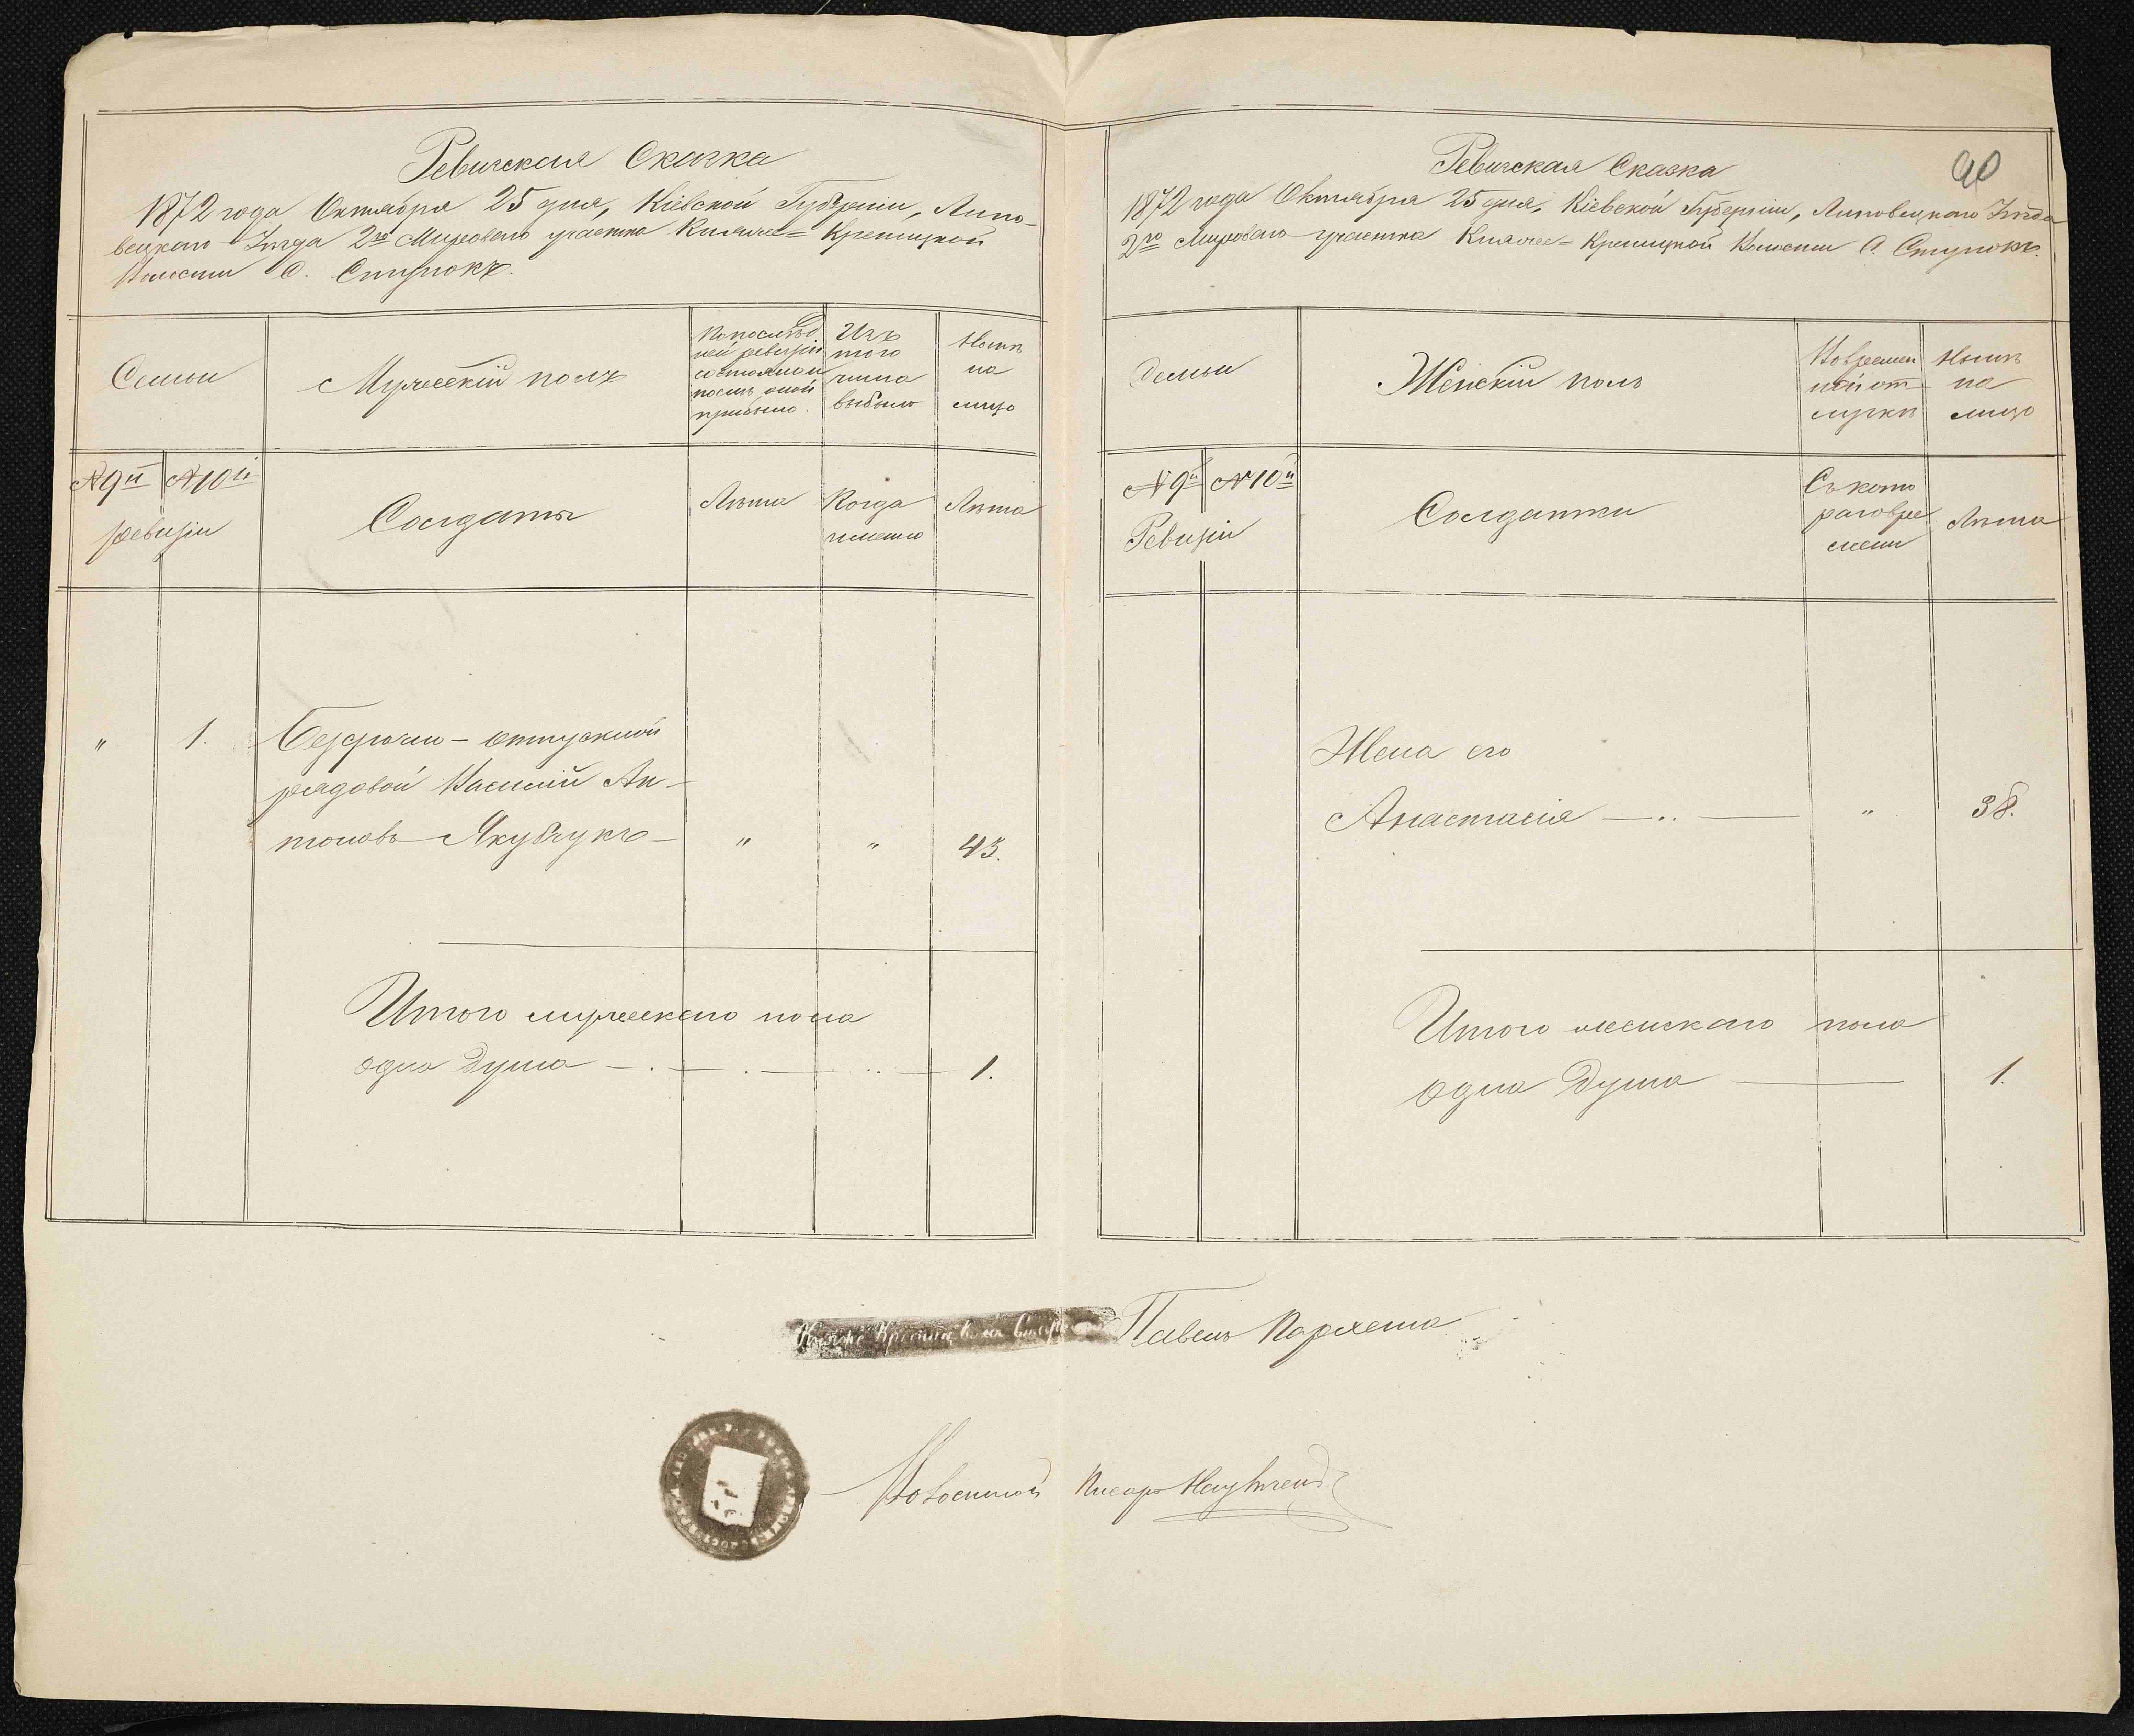 Ревизская Сказка
1872 года Октября 25 дня, Кіевской Губерніи, Липо-
вецкаго Уѣзда 2го Мироваго участка Княже=Креницкой
Волости С. Ступокъ.
Семьи
Мужескій полъ
По послѣд
ней ревизіи
состояло и
послѣ оной
прибыло.
Изъ
того
числа
выбыло
Нынѣ
на
лицо
№ 9й
№ 10й
ревизіи
Солдаты
Лѣта
Когда
именно
Лѣта
"
1.
Безсрочно-отпускной
рядовой Василій Ан-
тоновъ Якубчукъ-
"
"
43.
Итого мужескаго пола
одна душа
1.
Ревизская Сказка
90
1872 года Октября 25 дня, Кіевской Губерніи, Липовецкаго Уѣзда
2го Мироваго участка Княже=Креницкой Волости С. Ступокъ.
Семьи
Женскій полъ
Во времен
ной от-
лучкѣ
Нынѣ
на
лицо
№ 9й
№ 10й
Ревизіи
Солдатки
Съ кото
раго вре
мени
Лѣта
Жена его
Анастасія
"
38.
Итого женскаго пола
одна душа
1.
Павелъ
Волостной Писарь